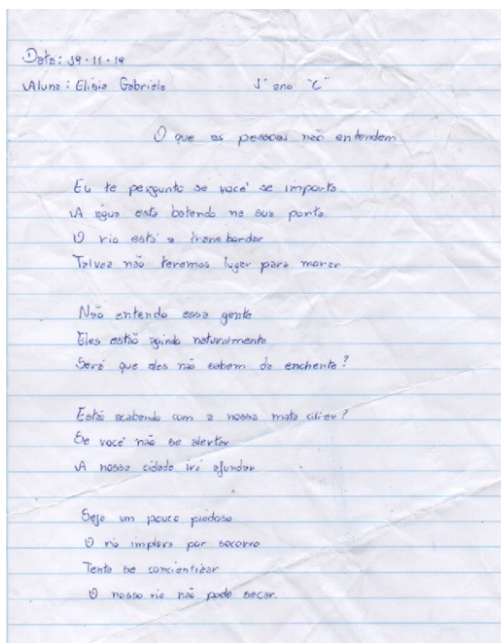 Data: 19-11-19
Aluna: Elisia Gabriela 1º ano "C"
O que as pessoas não entendem
Eu te pergunto se você se importa
A água está batendo na sua porta
O rio está a transbordar
Talvez não teremos lugar para morar
Não entendo essa gente
Eles estão agindo naturalmente
Será que eles não sabem da enchente?
Estão acabando com a nossa mata ciliar?
Se você não se alertar
A nossa cidade irá afundar
Seja um pouco piedoso
O rio implora por socorro
Tente se concientizar
O nosso rio não pode secar.